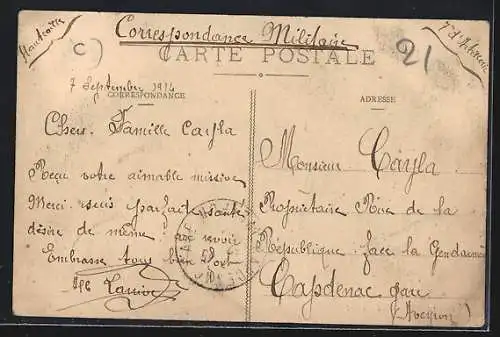 Correspondance Militaire
C)
21
CARTE POSTALE
7 September 1914
CORRESPONDANCE
ADRESSE
Chers. Famille Cayla
Reçu votre aimable missive
Merci. suis parfait santé
désire de même. au revoir
Embrasse tous bien
Monsieur Cayla
Propriétaire Rue de la
République face la Gendarmerie
Capdenac gare
(Aveyron)